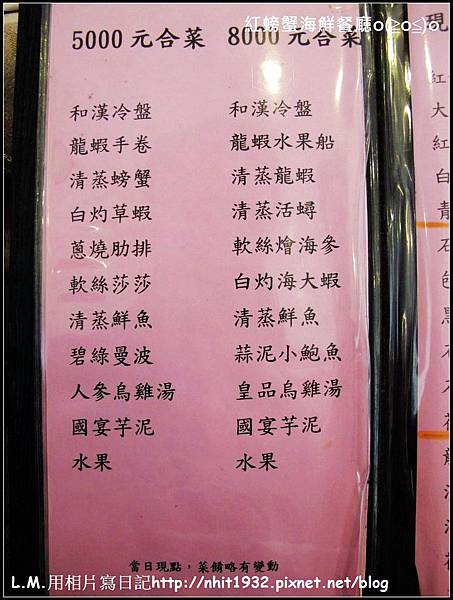 紅螃蟹海鮮餐廳o(≥o≤)o
5000 元合菜
和漢冷盤
龍蝦手卷
清蒸螃蟹
白灼草蝦
蔥燒肋排
軟絲莎莎
清蒸鮮魚
碧綠曼波
人參烏雞湯
國宴芋泥
水果
8000 元合菜
和漢冷盤
龍蝦水果船
清蒸龍蝦
清蒸活蟳
軟絲燴海參
白灼海大蝦
清蒸鮮魚
蒜泥小鮑魚
皇品烏雞湯
國宴芋泥
水果
當日現點，菜餚略有變動
現
紅
大
紅
白
青
L.M.用相片寫日記http://nhit1932.pixnet.net/blog